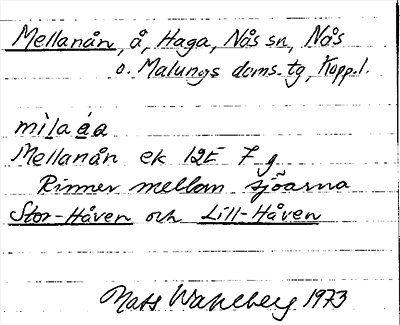 Mellanån, å, Haga, Nås sn, Nås
o. Malungs doms.tg, Kopp.l.
mìla á̱a̱
Mellanån ek 12E 7 g
Rinner mellan sjöarna
Stor-Håven och Lill-Håven
Mats Wahlberg 1973